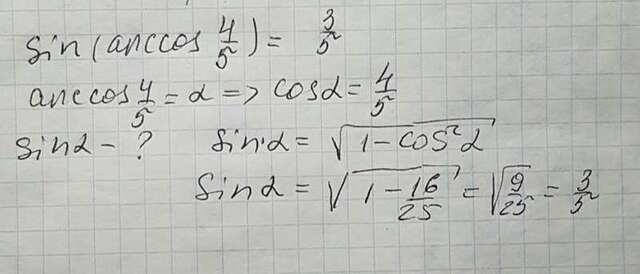 sin(arccos 4/5) = 3/5
arccos 4/5 = α => cosα = 4/5
sinα - ? sin·α = √(1 - cos²α)
sinα = √(1 - 16/25) = √(9/25) = 3/5